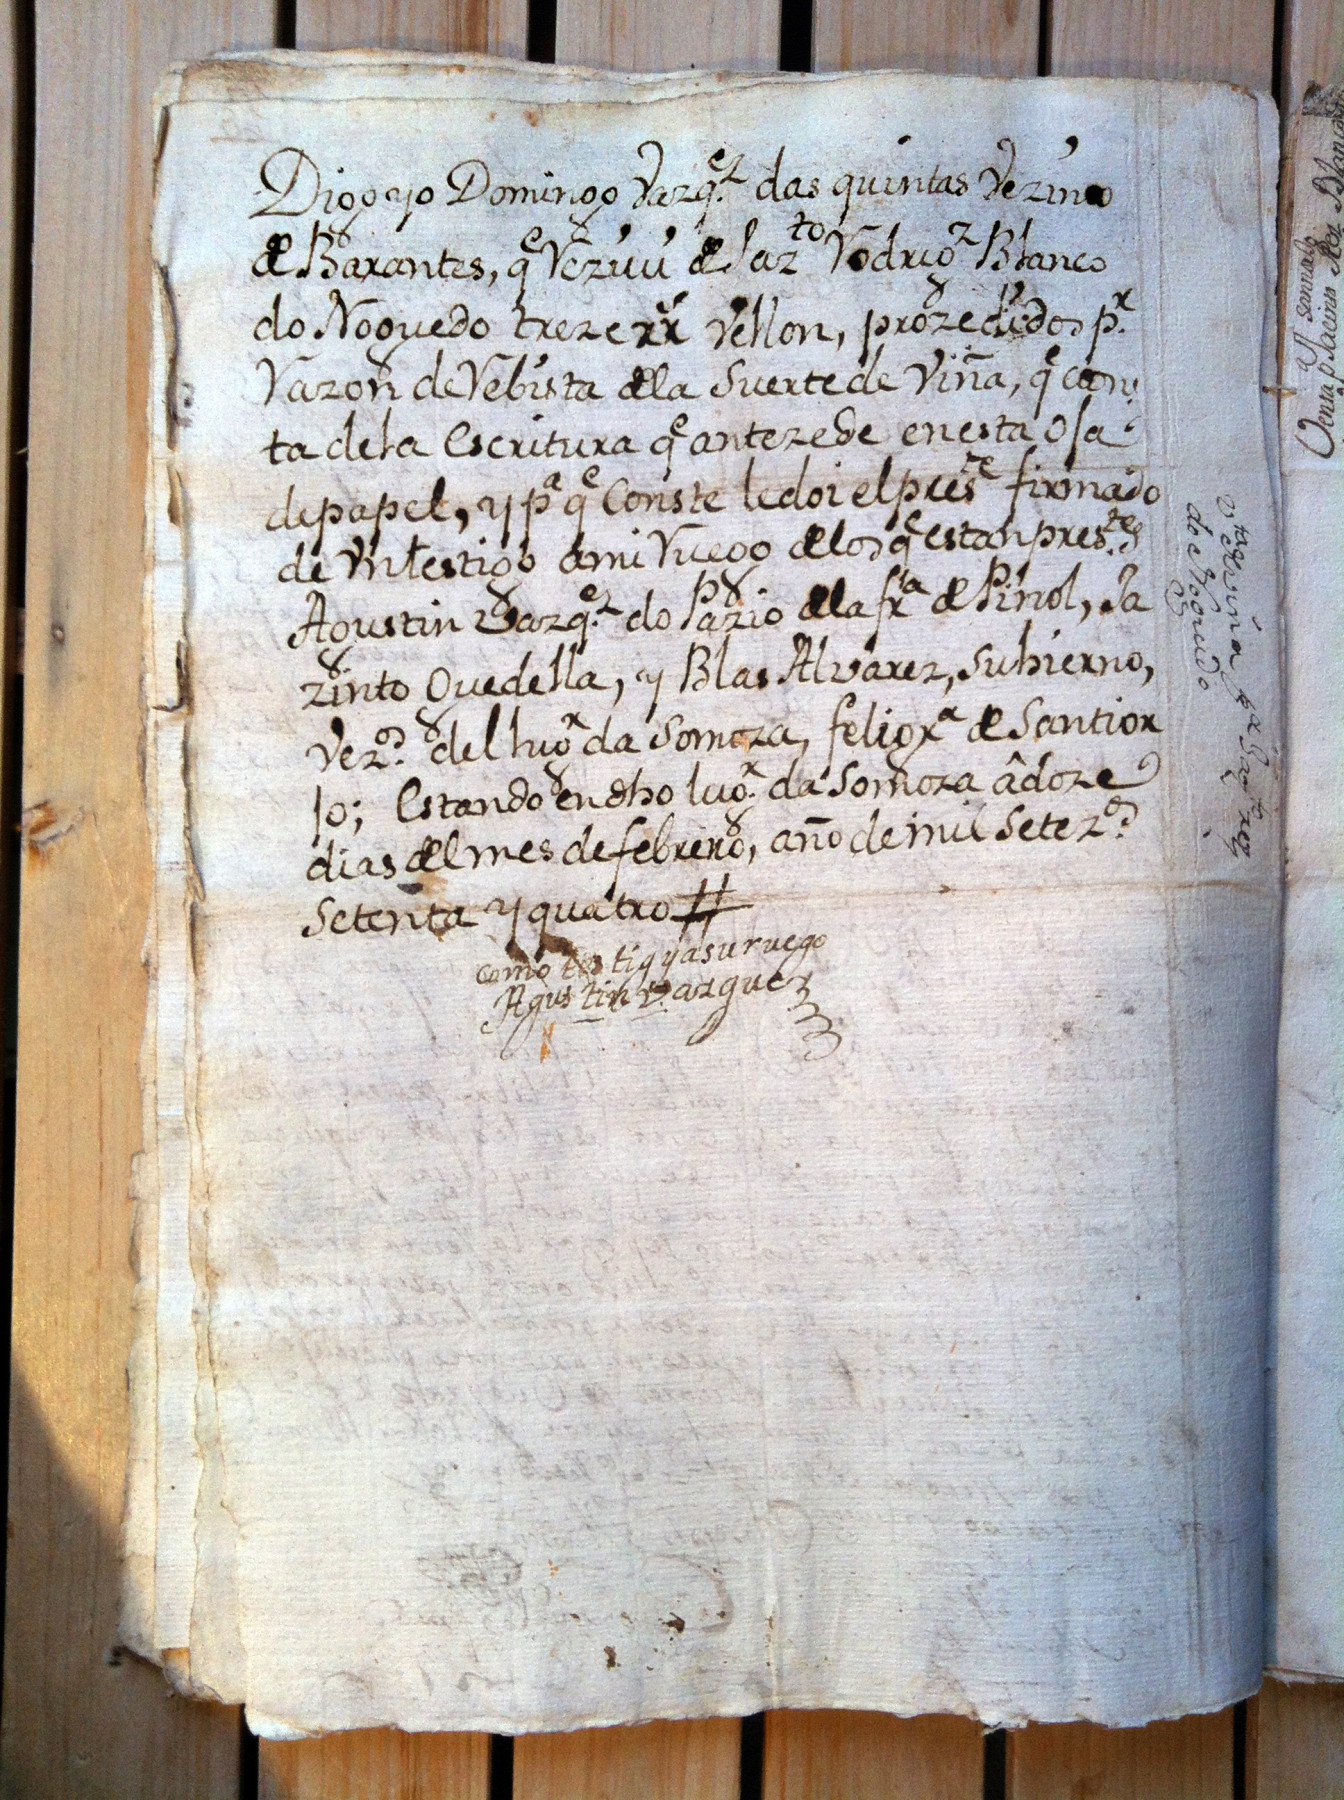 Digo yo Domingo Vazq.ez das quintas Vezino
de Barantes, qe Rezivi de Jazto Rodrigz Blanco
do Noguedo treze rrs Vellon, prozedidos pr
Razon de Rebista de la Suerte de Viña, qe cons
ta de la Escritura qe antezede en esta Oja
de papel, y pa qe Conste le doi el preste firmado
de Vn testigo a mi Ruego de los qe estan pres.tes
Agustin Vazq.ez do Pazio de la fra de Piñol, Ja
zinto Ouedella, y Blas Alvarez, su hierno,
Vez.os del lugr da Somoza, feligra de Santior
jo; Estando en dho lugr da Somoza â doze
dias del mes de febrero, año de mil Setez.os
Setenta y quatro //
como testigo y a su ruego
Agustin Vazquez
de viña
de Nogueido
Venta
Jacinto